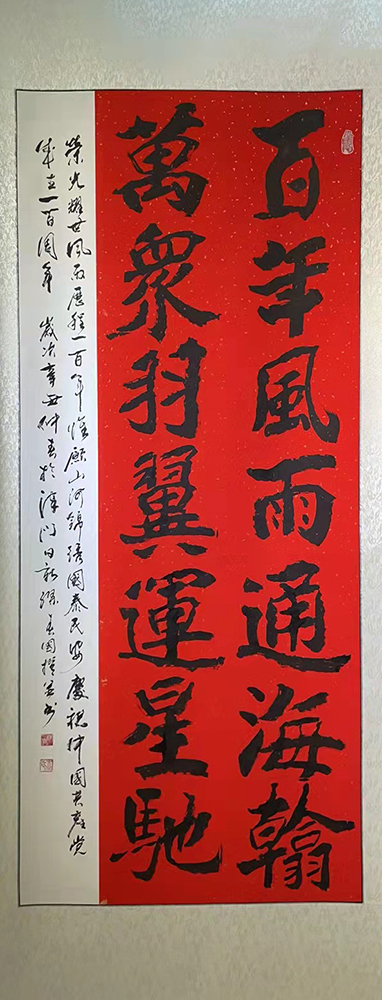 百年風雨通海翰
萬眾羽翼運星馳
榮光耀世風雨歷程一百年惟願山河錦綉國泰民安慶祝中國共產党
成立一百周年 歲次辛丑仲春於津門日新國撰并书